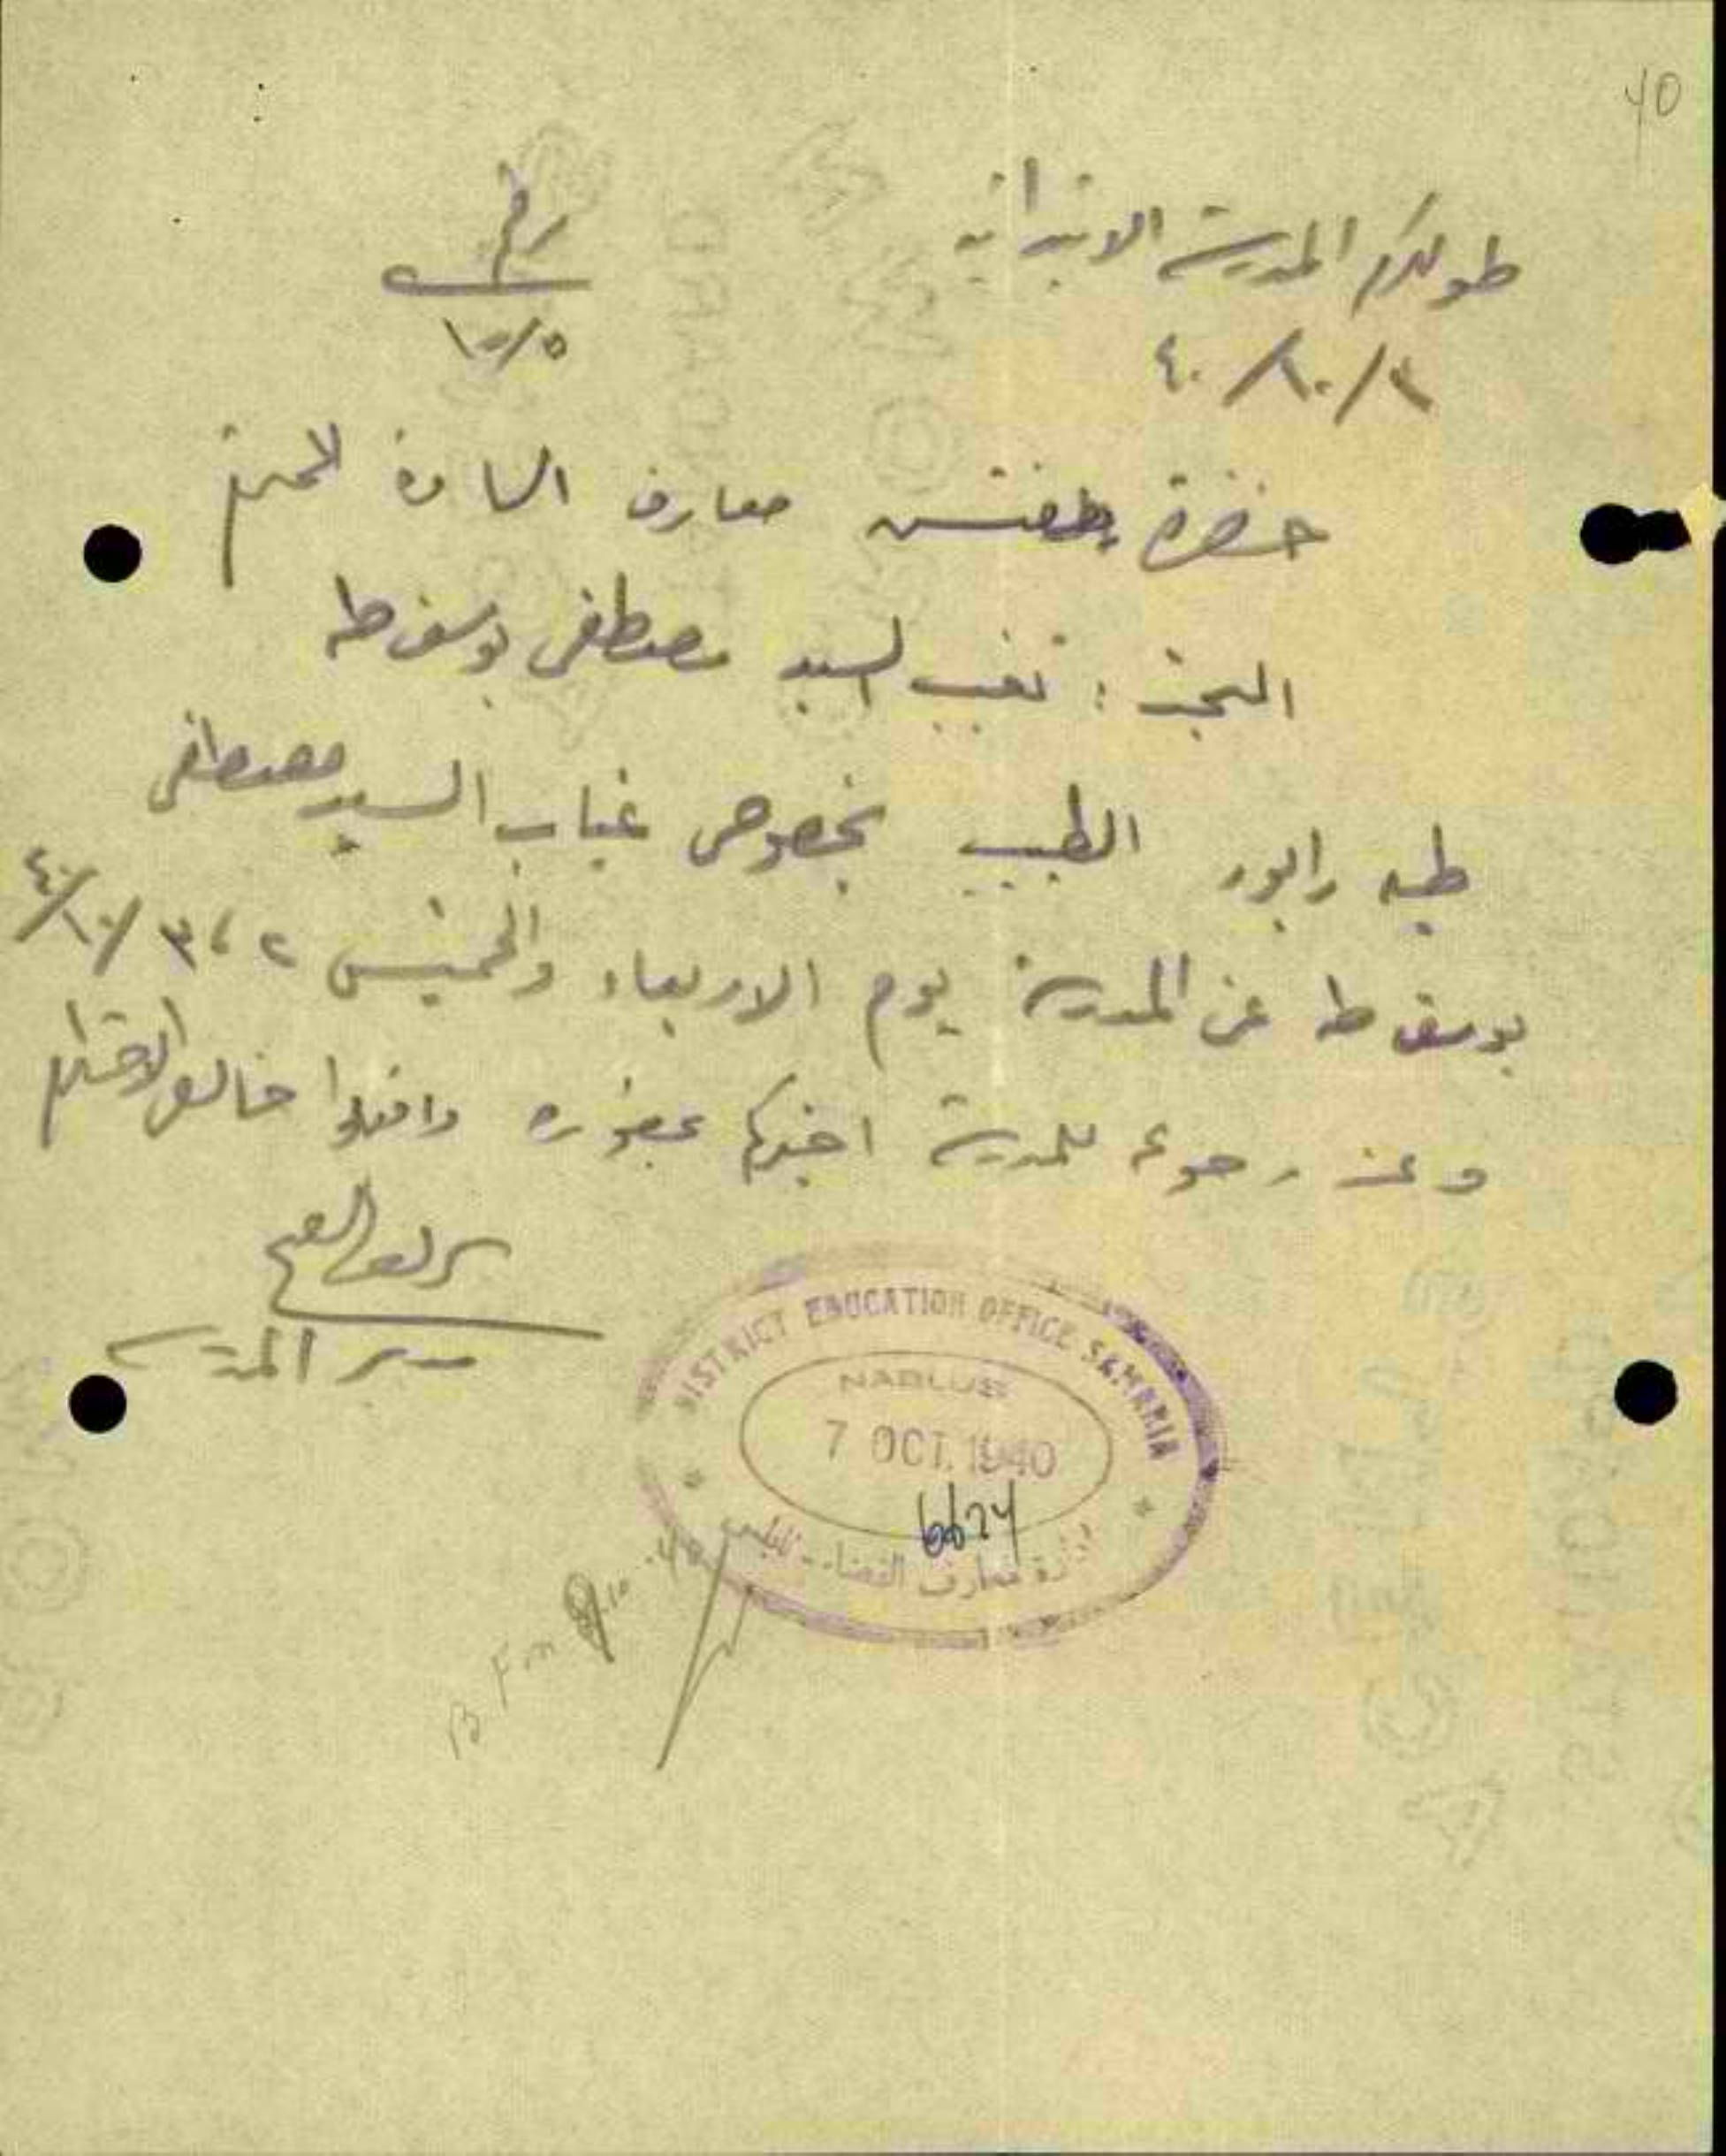 40
طولكرم المدرسة الابتدائية
رقم
١٥/٥
٤٠/١٠/٣
حضرة مفتش معارف السامرة المحترم
البحث : تغيب السيد مصطفى يوسف طه
طيه رابور الطبيب بخصوص غياب السيد مصطفى
يوسف طه عن المدرسة يوم الاربعاء والخميس ٢ ، ٣ /١٠/ ٤٠
وعند رجوعه للمدرسة اخبركم بحضوره واقبلوا فائق الاحترام
مدير المدرسة
DISTRICT EDUCATION OFFICE SAMARIA
NABLUS
7 OCT. 1940
6624
ادارة معارف القضاء - نابلس
B. F. on 9.10.40